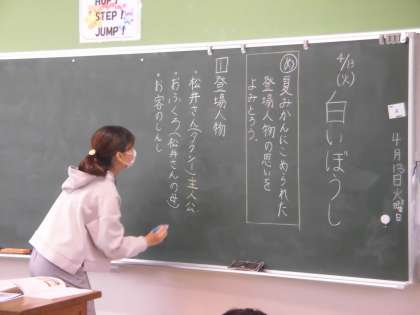 HOP!
STEP!
JUMP!
4月13日火曜日
4/13
(火)
白いぼうし
め
夏みかんにこめられた
登場人物の思いを
よみとろう。
1 登場人物
・松井さん(タクシー)主人公
・おふくろ(松井さんの母)
・お客のしんし